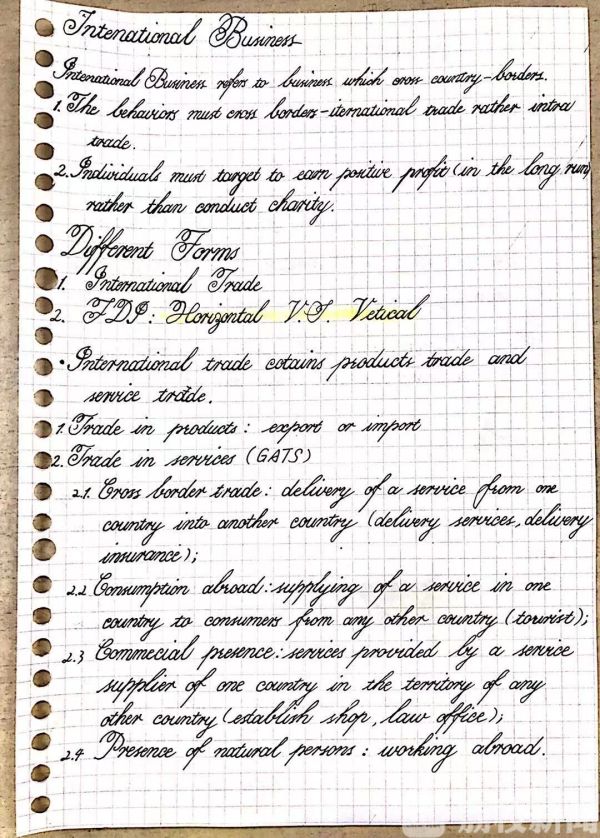 Intenational Business
Intenational Business refers to business which cross country-borders.
1. The behaviors must cross borders-iternational trade rather intra
trade.
2. Individuals must target to earn positive profit (in the long run)
rather than conduct charity.
Different Forms
1. International Trade
2. FDI: Horizontal V.S. Vetical
• International trade cotains products trade and
service trade.
1. Trade in products: export or import
2. Trade in services (GATS)
2.1. Cross border trade: delivery of a service from one
country into another country (delivery services, delivery
insurance);
2.2 Consumption abroad: supplying of a service in one
country to consumers from any other country (tourist);
2.3 Commecial presence: services provided by a service
supplier of one country in the territory of any
other country (establish shop, law office);
2.4 Presence of natural persons: working abroad.